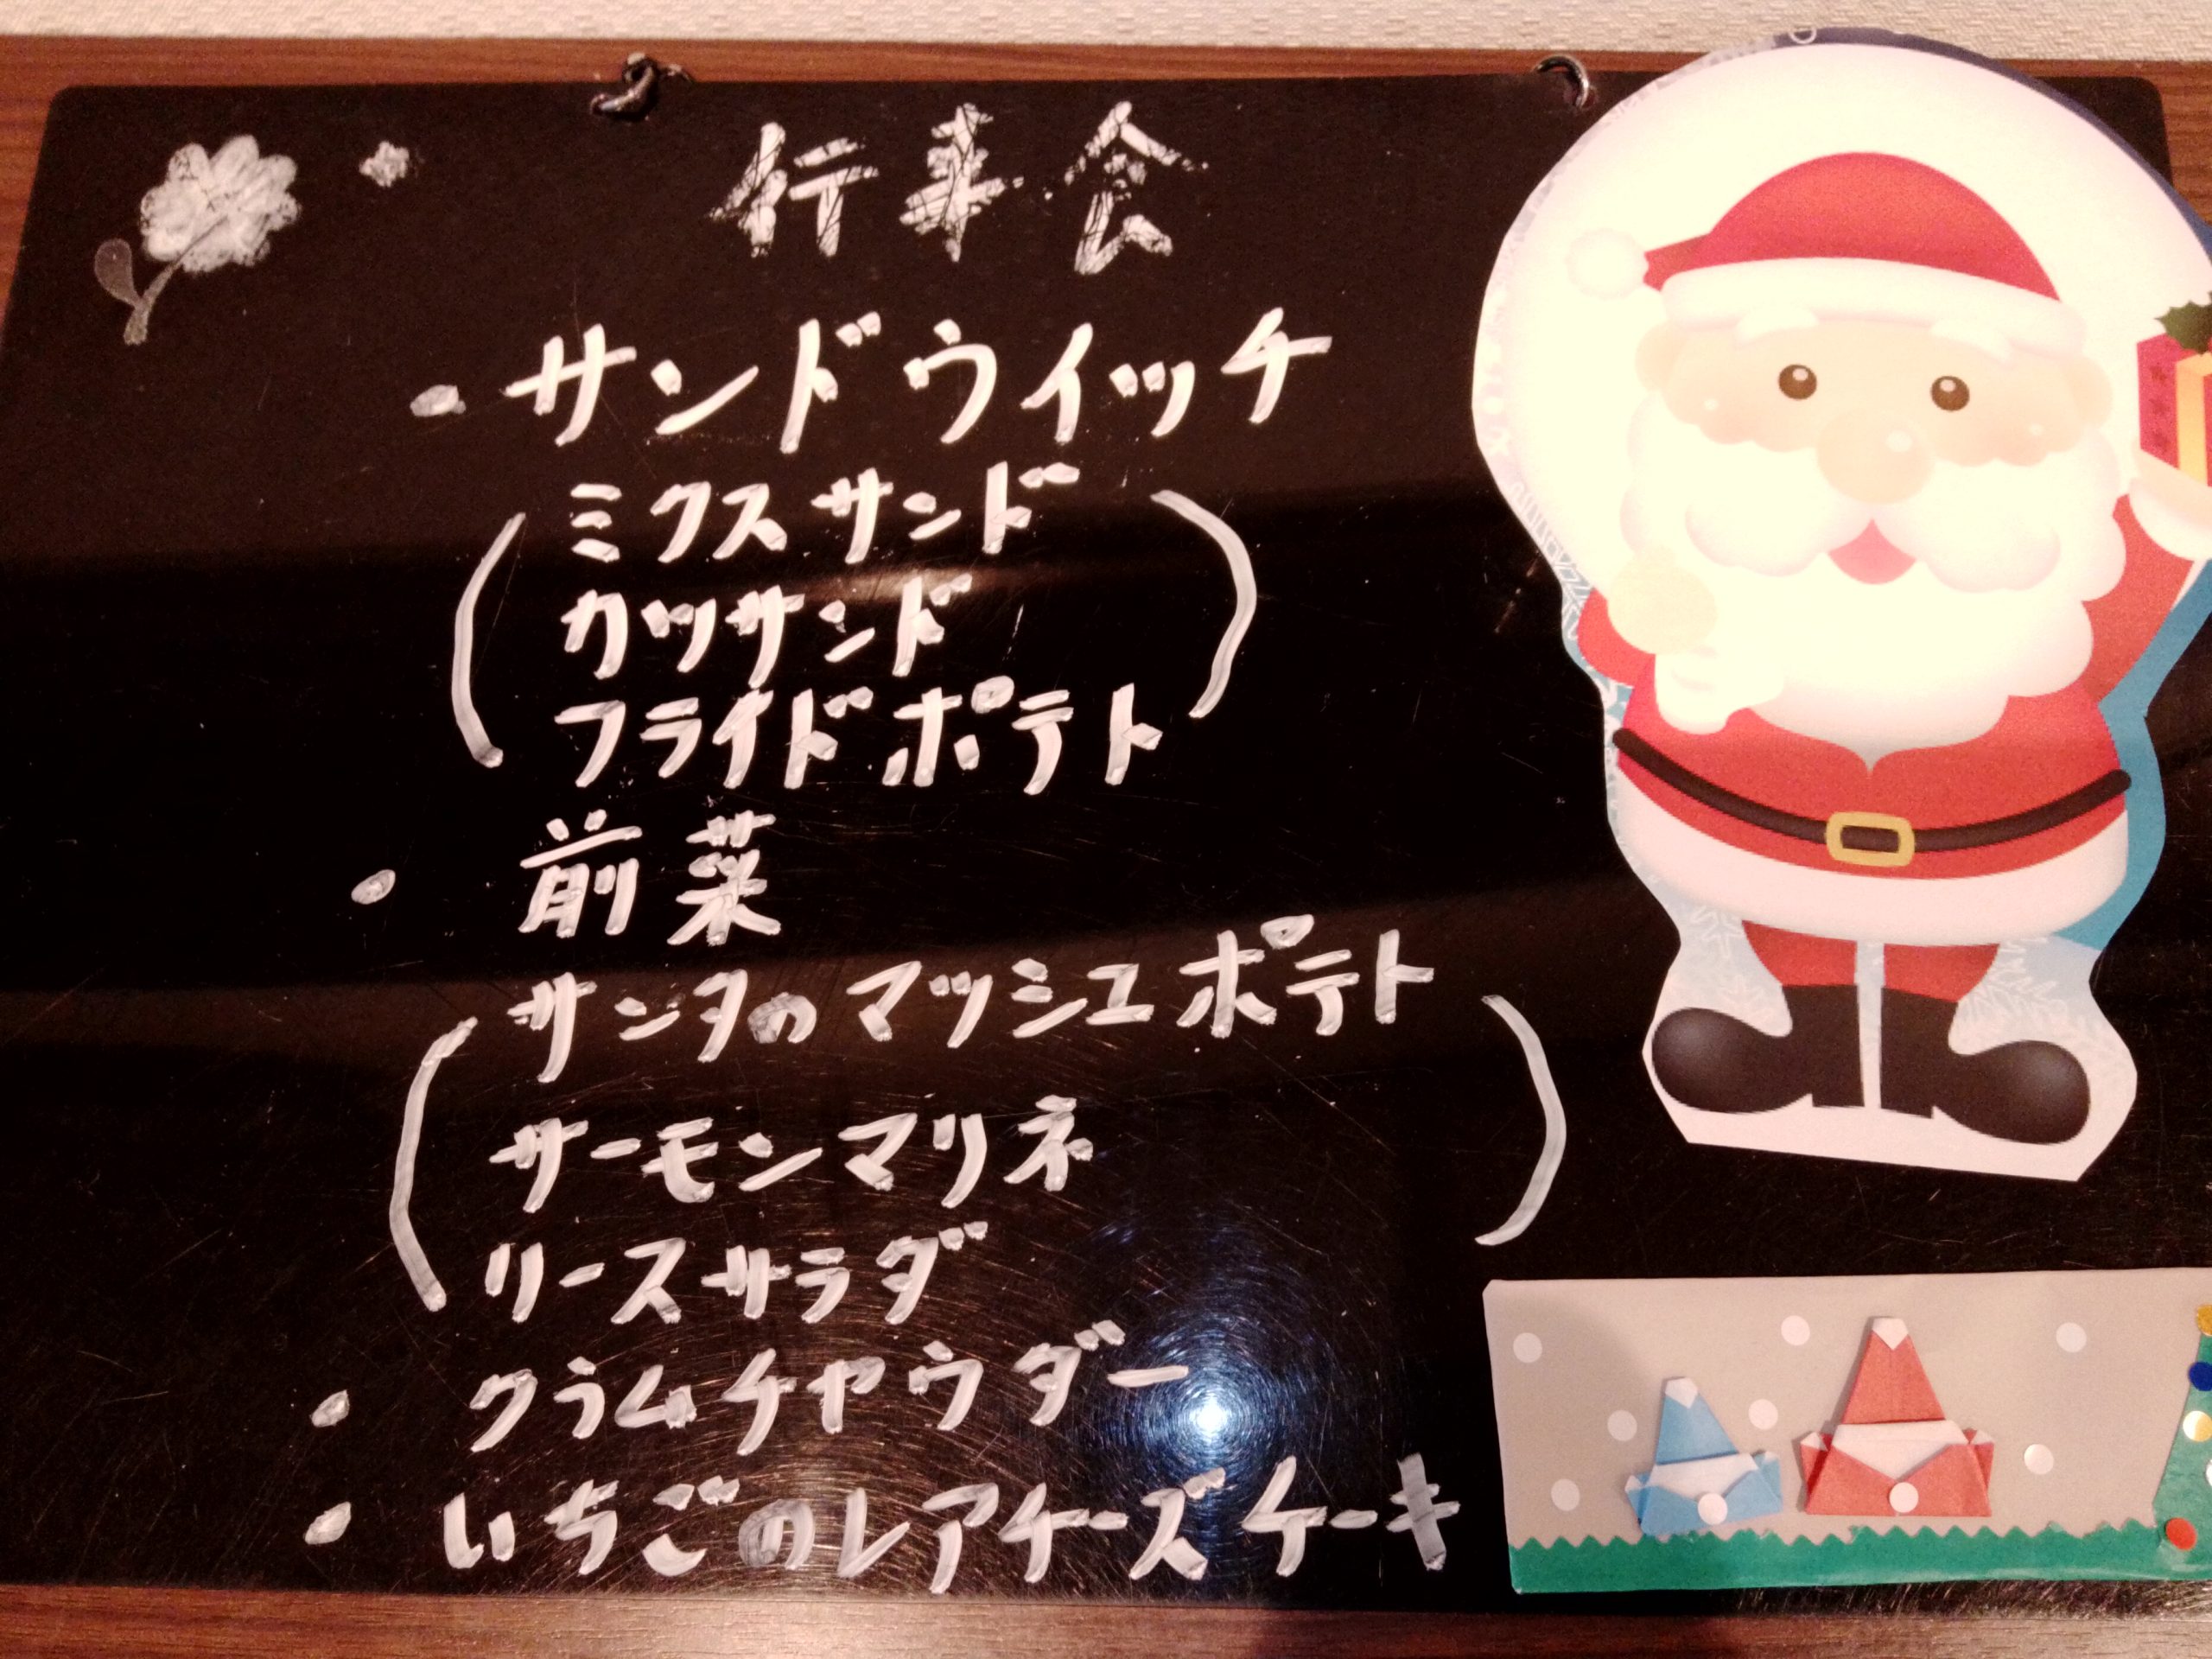 行事食
・サンドウイッチ
(ミクスサンド
カツサンド
フライドポテト)
・前菜
(サンタのマッシュポテト
サーモンマリネ
リースサラダ)
・クラムチャウダー
・いちごのレアチーズケーキ